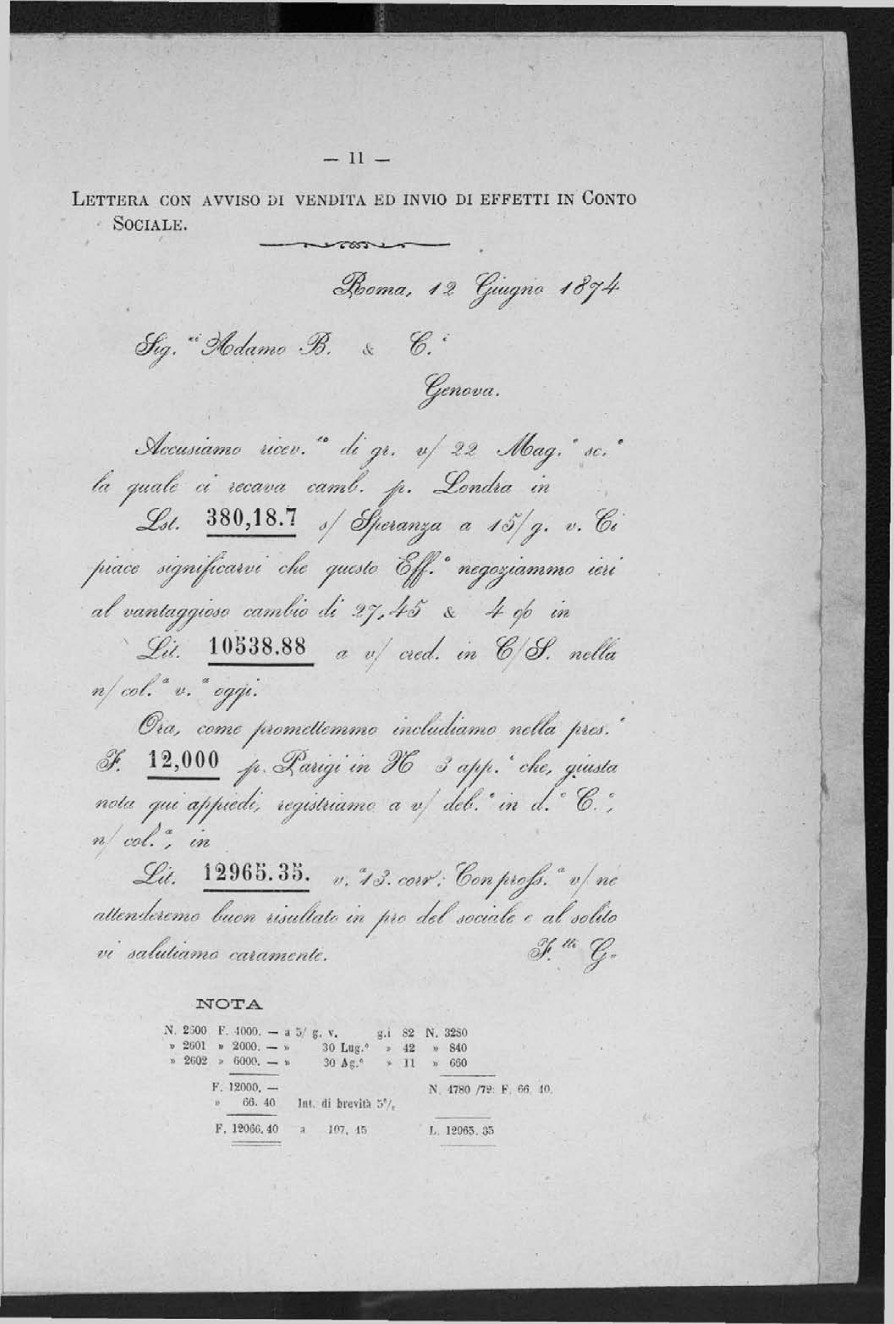 — 11 —
LETTERA CON AVVISO DI VENDITA ED INVIO DI EFFETTI IN CONTO
SOCIALE.
Roma, 12 Giugno 1874
Sig.ri Adamo B. & C.i
Genova.
Accusiamo ricev.to di gr. v/ 22 Mag.o sc.o
la quale ci recava camb. p. Londra in
Lst. 380,18.7 s/ Speranza a 15/g. v. Ci
piace significarvi che questo Eff.o negoziammo ieri
al vantaggioso cambio di 27,45 & 4 o/o in
Lit. 10538.88 a v/ cred. in C/S. nella
n/ col.a v.a oggi.
Ora, come promettemmo includiamo nella pres.e
F. 12,000 p. Parigi in N 3 app.i che, giusta
nota qui appiedi, registriamo a v/ deb.o in d.o C.o,
n/ col.a, in
Lit. 12965.35. v.a 13. corr; Con profs.a v/ ne
attenderemo buon risultato in pro del sociale e al solito
vi salutiamo caramente. F.lli G.
NOTA
N. 2600 F. 4000. — a 5/ g. v. g.i 82 N. 3280
» 2601 » 2000. — » 30 Lug.o » 42 » 840
» 2602 » 6000. — » 30 Ag.o » 11 » 660
F. 12000. — N. 4780 /72: F. 66. 40.
» 66. 40 Int. di brevità 5%
F. 12066.40 a 107, 45 L. 12965. 35